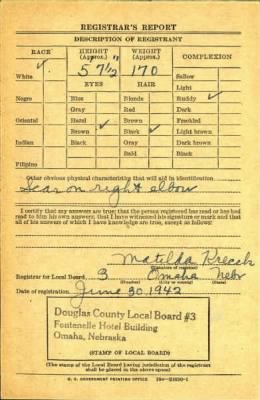 REGISTRAR'S REPORT
DESCRIPTION OF REGISTRANT
RACE HEIGHT (Approx.) WEIGHT (Approx.) COMPLEXION
✓ 5 7½" 170
White EYES HAIR Sallow
Light
Negro Blue Blonde Ruddy ✓
Gray Red Dark
Oriental Hazel Brown Freckled
Brown ✓ Black ✓ Light brown
Indian Black Gray Dark brown
Bald Black
Filipino
Other obvious physical characteristic that will aid in identification
Scar on right elbow
I certify that my answers are true; that the person registered has read or has had
read to him his own answers; that I have witnessed his signature or mark and that
all of his answers of which I have knowledge are true, except as follows:
Matilda
(Signature of registrar)
Registrar for Local Board 3 Omaha Nebr
(Number) (City or county) (State)
Date of registration June 30, 1942
Douglas County Local Board #3
Fontenelle Hotel Building
Omaha, Nebraska
(STAMP OF LOCAL BOARD)
(The stamp of the Local Board having jurisdiction of the registrant
shall be placed in the above space)
U. S. GOVERNMENT PRINTING OFFICE